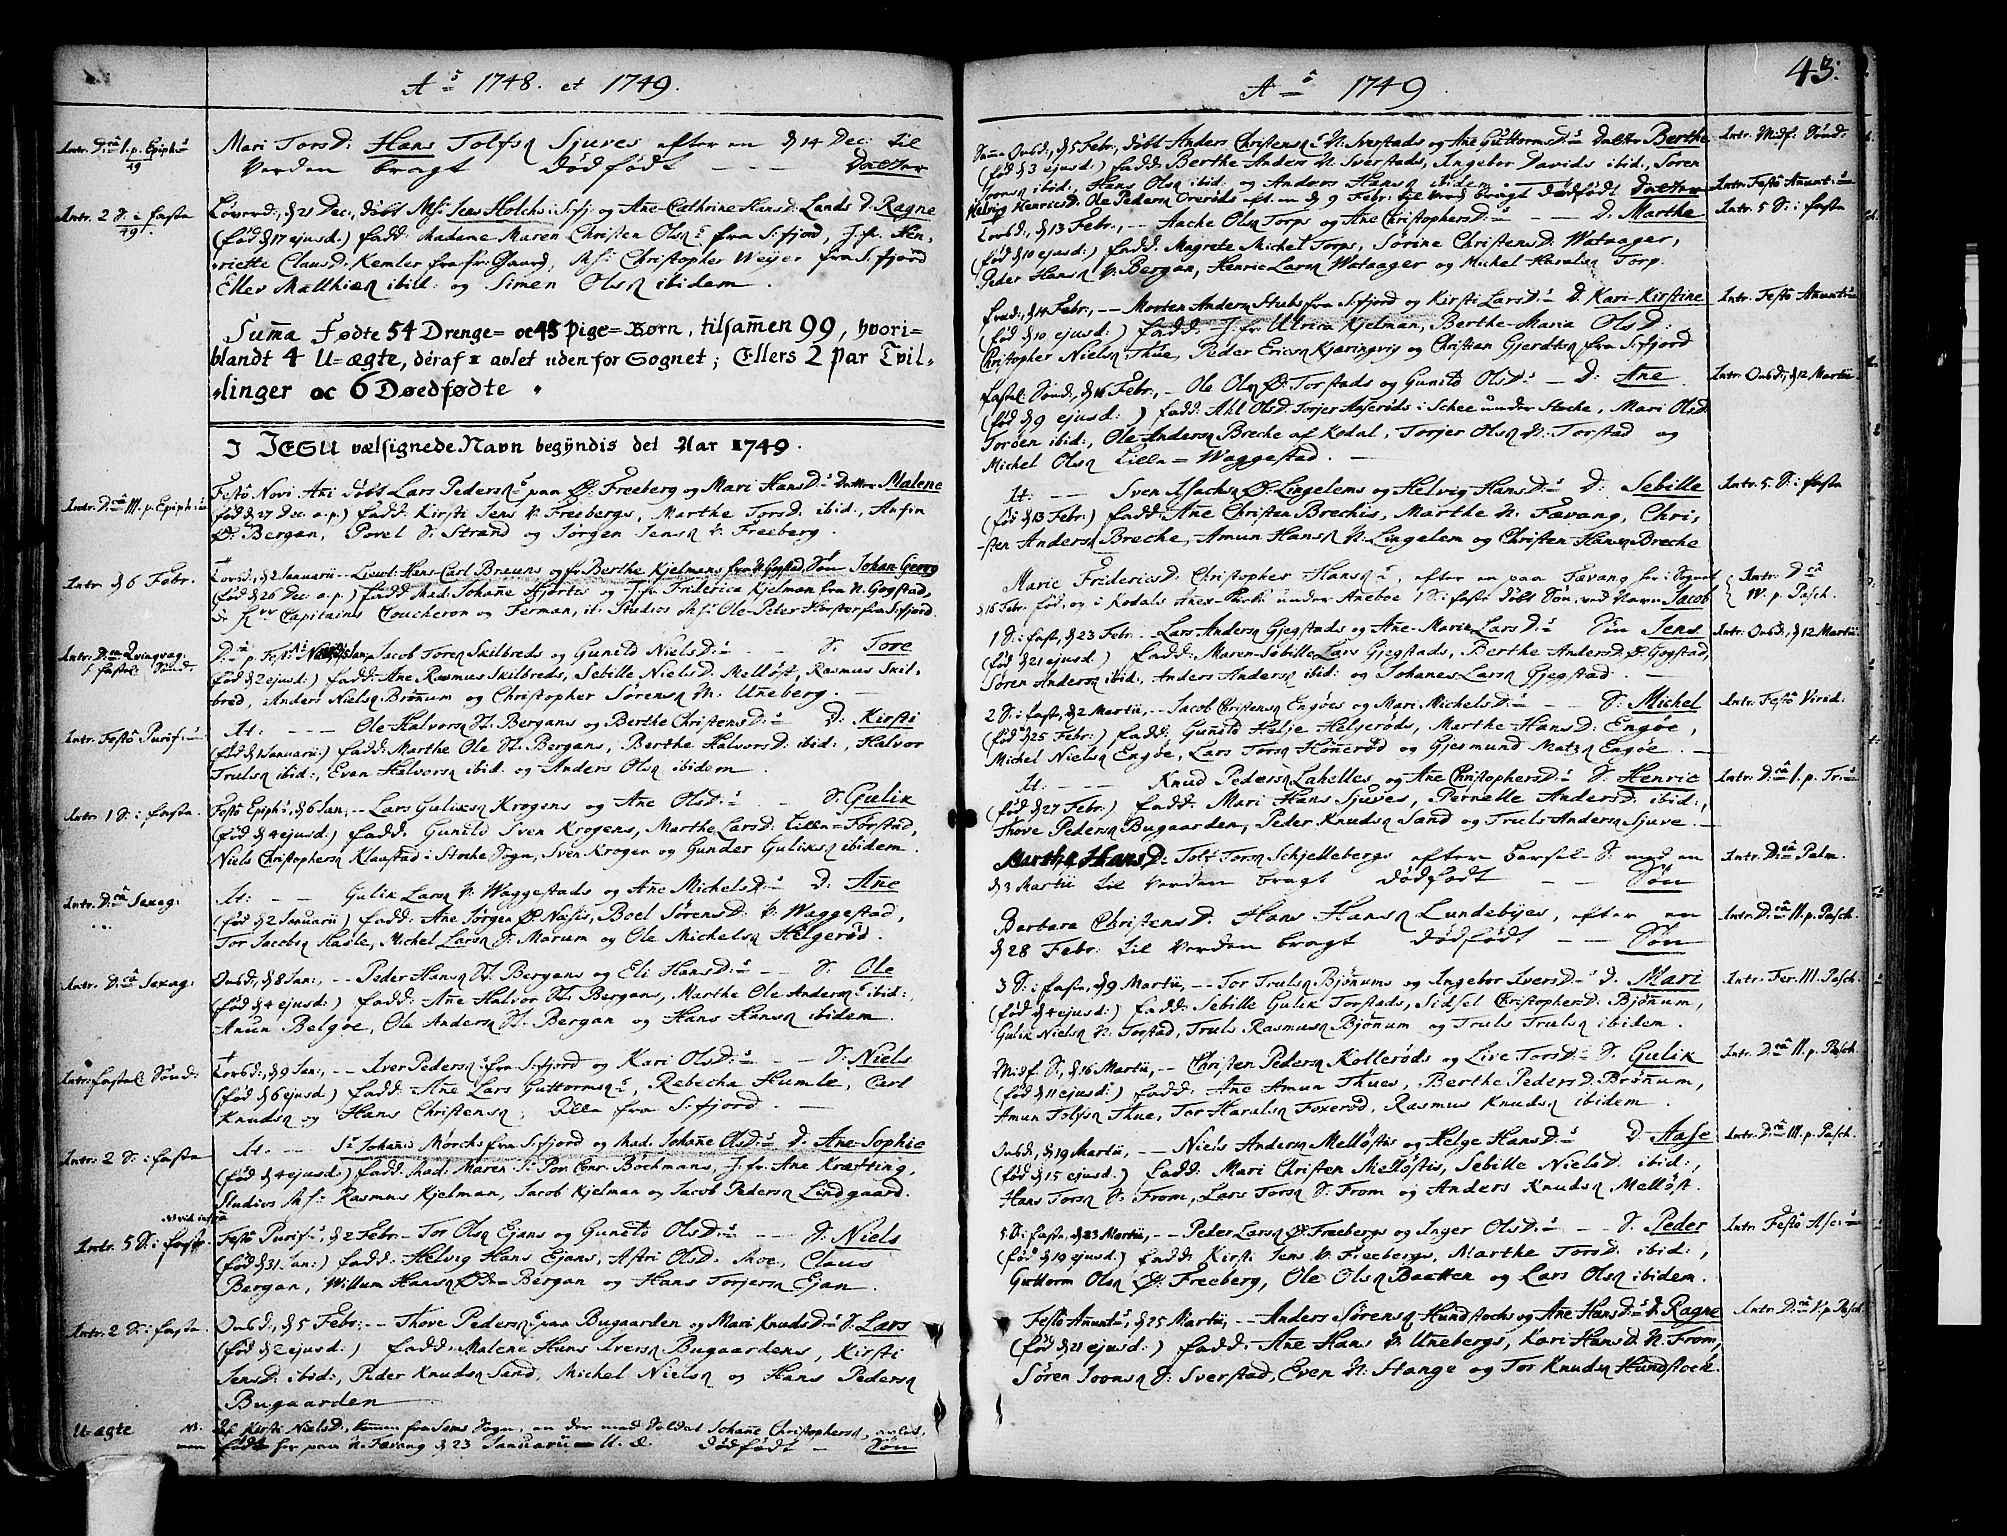 Aō 1748. et 1749.
Intr. D:câ I. p. Epiph:
49
Mari Torsd: Hans Tolfsn Sjuves efter en d 14 Dec: til
Verden bragt dødfødt - - - Datter
Intr. 2 S. i fasta
49.
Løverd:, d 21 Dec:, døbt Mr: Iver Holchs i S:fj: og Ane-Cathrine Hansd: Lands D. Ragne
(fød d 17 ejusd:) fadd: Madame Maren Christen Olsns fra S:fjord, J.fr. Hen-
riette Clausd: Kemler fra fr: Gaard, Mr: Christopher Weyer fra S:fjord
Eller Matthisn ibid: og Simen Olsn ibidem.
Suma Fødte 54 Drenge= oc 45 Pige= Børn, tilsamen 99, hvori=
blandt 4 U=ægte, deraf 1 avlet uden for Sognet; Ellers 2 Par Tvil=
linger oc 6 Døedfødte.
I JESU velsignede Navn begyndis det Aar 1749.
Intr. D:câ III. p. Epiph:
Festo Novi Ani døbt Lars Pedersns paa Ø. Freeberg og Mari Hansd:s Datter Malene
(fød d 27 Dec. a.p.) fadd: Kirsti Jens V. Freebergs, Marthe Torsd. ibid:, Anfin
Ø. Bergan, Povel S. Strand og Jørgen Jensn V. Freeberg.
Intr. d 6 Febr.
Torsd:, d 2 Januarii - Lieut: Hans-Carl Brauns og fr. Berthe Kjelmans fra N. Gogstad, Søn Johan Georg
(fød d 26 Dec a.p.) fadd: Mad. Johane Hjortes og J.fr Friderica Kjelman fra N. Gogstad,
de Hrr Capitains Coucheron og Ferman, it: Studios Mr: Ole-Peter Horster fra S:fjord
Intr. D:ca Qvinqvag:
s. fastel. Sønd:
D:câ p. Fest: Jacob Torsn Skilbreds og Gunild Nielsd:s - - S. Tore
(fød d 2 ejusd:) fadd: Ane Rasmus Skilbreds, Sebille Nielsd. Melløst, Rasmus Skil-
bred, Anders Nielsn Brønum og Christopher Sørensn N: Uneberg.
Intr. Festo Purif:
It: - - - Ole Halvorsn St. Bergans og Berthe Christensd:s - D: Kirsti
(fød d 1 Januarii) fadd: Marthe Ole St. Bergans, Berthe Halvorsd: ibid:, Halvor
Trulsn ibid:, Even Halvorsn ibid. og Anders Olsn ibidem.
Intr. 1 S: i fasta.
Festo Epiph:, d 6 Jan:, - Lars Guliksn Krogens og Ane Olsd:s - S. Gulik
(fød d 4 ejusd:) fadd. Gunild Sven Krogens, Marthe Larsd: Lilla=Torstad,
Niels Christophersn Klaastad i Stoche Sogn, Sven Krogen og Gunder Guliksn ibidem.
Intr. D:câ Sexag:
It: - - Gulik Larsn V. Waggestads og Ane Michelsd:s D: Ane
(fød d 2 Januarii) fadd: Ane Jørgen Ø. Nasis, Boel Sørensd: V. Waggestad,
Tor Jacobsn Hasle, Michel Larsn S. Marum og Ole Michelsn Helgerød.
Intr. D:câ Sexag:
Onsd:, d 8 Jan:, - - Peder Hansn St. Bergans og Eli Hansd:s - - S: Ole
(fød d 4 ejusd:) fadd: Ane Halvor St. Bergans, Marthe Ole Andersns ibid:
Amun Belgøe, Ole Andersn St. Bergan og Hans Hansn ibidem.
Intr: fastel: Sønd:
Torsd:, d 9 Jan:, - - Iver Pedersns fra S:fjord og Kari Olsd:s - - S: Niels
(fød d 6 ejusd:) fadd: Ane Lars Guttormsns, Rebecha Humle, Carl
Knudsn og Hans Christensn, illa fra S:fjord.
Intr. 2 S: i fasta
It: - Sr Johanis Mørchs fra S:fjord og Mad. Johane Olsd:s D. Ane-Sophie
(fød d 4 ejusd:) fadd: Mad. Maren Bøchmans, J.fr. Ane Krætting,
Studios Mr: Rasmus Kjelman, Jacob Kjelman og Jacob Pedersn Lindgaard.
Nb vid infra
Intr. 5 S: i fasta.
Festo Purif:, d 2 Febr:- Tor Olsn Ejans og Gunild Olsd:s - - S. Niels
(fød d 31 Jan:) fadd: Helvig Hans Ejans, Astri Olsd: Thoe, Claus
Bergan, Willum Hansn Ødz= Bergan og Hans Torjersn Ejan.
Intr. 2 S: i fasta.
Onsd:, d 5 Febr:, - - Thove Pedersns paa Bugaarden og Mari Knudsd:s S. Lars
(fød d 2 ejusd:) fadd: Malene Hans Iversn Bugaardens, Kirsti
Jensd: ibid:, Peder Knudsn Sand, Michel Nielsn og Hans Pedersn
Bugaarden
U=ægte
Af Kirsti Nielsd:, kommen fra Sems Sogn, en der med Soldat Johane Christophersn, avlet,
født her paa N. Fævang d 23 Januarii - U. æ. dødfødt - Søn
Aō 1749.
43.
Sama Onsd:, d 5 Febr:, døbt Anders Christensns N. Sverstads og Ane Guttormsd:s Datter Berthe
(fød d 3 ejusd:) fadd: Berthe Anders N. Sverstads, Ingebor Davids ibid:, Søren
ibid:, Hans Olsn ibid: og Anders Hansn ibidem.
Intr. Midf: Sønd:
Helvig Henricsd: Ole Pedersn Orerøds eft. en d 9 Febr: til Verd bragt dødfødt Datter
Intr. Festo Anunt:
Torsd:, d 13 Febr:, - Aache Olsn Torps og Ane Christophersd:s - - D. Marthe
(fød d 10 ejusd:) fadd: Magrete Michel Torps, Sørine Christensd: Wataager,
Peder Hansn V. Bergan, Henric Larsn Wataager og Michel Haralsn Torp.
Intr. 5 S: i fasta
Fred:, d 14 Febr:, - - Morten Andersn Stubs fra S:fjord og Kirsti Larsd:s D. Kari-Kirstine
(fød d 10 ejusd:) fadd: J.fr Ulrica Kjelman, Berthe-Maria Olsd:
Christopher Nielsn Thue, Peder Ericsn Kjæringvig og Christian Gjerdtsn fra S:fjord
Intr. Festo Anunt:
Fastel: Sønd:, d 16 Febr:, - Ole Olsn Ø. Torstads og Gunild Olsd:s - D: Ane
(fød d 9 ejusd: ) fadd: Ahl Olsd. Torjer Aaserøds i Schee under Stoche, Mari Olsd
Torøen ibid:, Ole Andersn Breche af Kodal, Torjer Olsn N: Torstad og
Michel Olsn Lilla=Waggestad.
Intr. Onsd:, d 12 Martii
It: - - Sven Isachsn Ø. Lingelems og Helvig Hansd:s D: Sebille
(fød d 13 Febr:) fadd: Ane Christen Brechis, Marthe N. Fævang, Chri-
sten Andersn Breche, Amun Hansn N. Lingelem og Christen Hansn Breche
Intr. 5. S: i fasta
Marie Fridericsd. Christopher Hansns, efter en paa Fævang her i Sognet
d 16 Febr: fød, og i Kodals Anex-Kirke under Aneboe 1 S: i fasta døbt Søn, ved Navn Jacob
Intr. D:câ
IV. p. Pasch.
1 S: i fast, d 23 Febr: - Lars Andersn Gjegstads og Ane-Marie Larsd:s Søn Jens
(fød d 21 ejusd:) fadd: Maren-Sebille Lars Gjegstads, Berthe Andersd. Ø. Gogstad,
Søren Andersn ibid:, Anders Andersn ibid: og Johanes Larsn Gjegstad.
Intr. Onsd:, d 12 Martii
2 S: i fasta, d 2 Martii, - Jacob Christensn Engøes og Mari Michelsd:s - - S. Michel
(fød d 25 Febr:) fadd: Gunild Helje Helgerøds, Marthe Hansd: Engøe,
Michel Nielsn Engøe, Lars Torsn Hønerød og Gjesmund Matzn Engøe.
Intr. Festo Virid:
It: - - - Knud Pedersn Lahelles og Ane Christophersd:s S: Henric
(fød d 27 Febr:) fadd: Mari Hans Sjuves, Pernelle Andersd. ibid:,
Thove Pedersn Bugaarden, Peder Knudsn Sand og Truls Andersn Sjuve.
Intr. D:câ I. p. Tr:
Marthe Hansd: Tolf Torsn Schjellebergs efter barsel-S: med en
d 3 Martii til Verden bragt dødfødt - - Søn
Intr. D:ca Palm.
Barbara Christensd. Hans Hansn Lundebyes, efter en
d 28 Febr: til Verden bragt dødfødt - - Søn
Intr. D:câ II. p. Pasch.
3 S: i fasta, d 9 Martii, - - Tor Trulsn Bjønums og Ingebor Iversd:s D. Mari
(fød d 4 ejusd:) fadd: Sebille Gulik Torstads, Sidsel Christophersd: Bjønum,
Gulik Nielsn N. Torstad, Truls Rasmusn Bjønum og Truls Trulsn ibidem.
Intr. Fer. III. Pasch.
Midf. S:, d 16 Martii, - Christen Pedersn Kollerøds og Live Torsd:s S. Gulik
(fød d 11 ejusd:) fadd: Ane Amun Thues, Berthe Pedersd. Brønum,
Amun Tolfsn Thue, Tor Haralsn Foxerød, Rasmus Knudsn ibidem.
Intr. D:câ II. p. Pasch.
Onsd:, d 19 Martii, - - Niels Andersn Melløstis og Helge Hansd:s D. Aase
(fød d 15 ejusd:) fadd: Mari Christen Melløstis, Sebille Nielsd: ibid:,
Hans Torsn S. From, Lars Torsn S. From og Anders Knudsn Melløst.
Intr. D:câ III. p. Pasch.
5 S: i fasta, d 23 Martii, - - Peder Larsn Ø. Freebergs og Inger Olsd:s - - S: Peder
(fød d 19 ejusd:) fadd: Kirsti Jens V. Freebergs, Marthe Torsd: ibid:,
Guttorm Olsn Ø. Freeberg, Ole Olsn Baatten og Lars Olsn ibidem.
Intr. Festo Asc:
Festo Anunt:, d 25 Martii, - - Anders Sørensn Hundstochs og Ane Hansd:s D. Ragne
(fød d 21 ejusd:) fadd: Ane Hans V. Unebergs, Kari Hansd: N. From,
Søren Joonsn S. Sverstad, Even N. Stange og Tor Knudsn Hundstock.
Intr. D:câ V. p. Pasch.